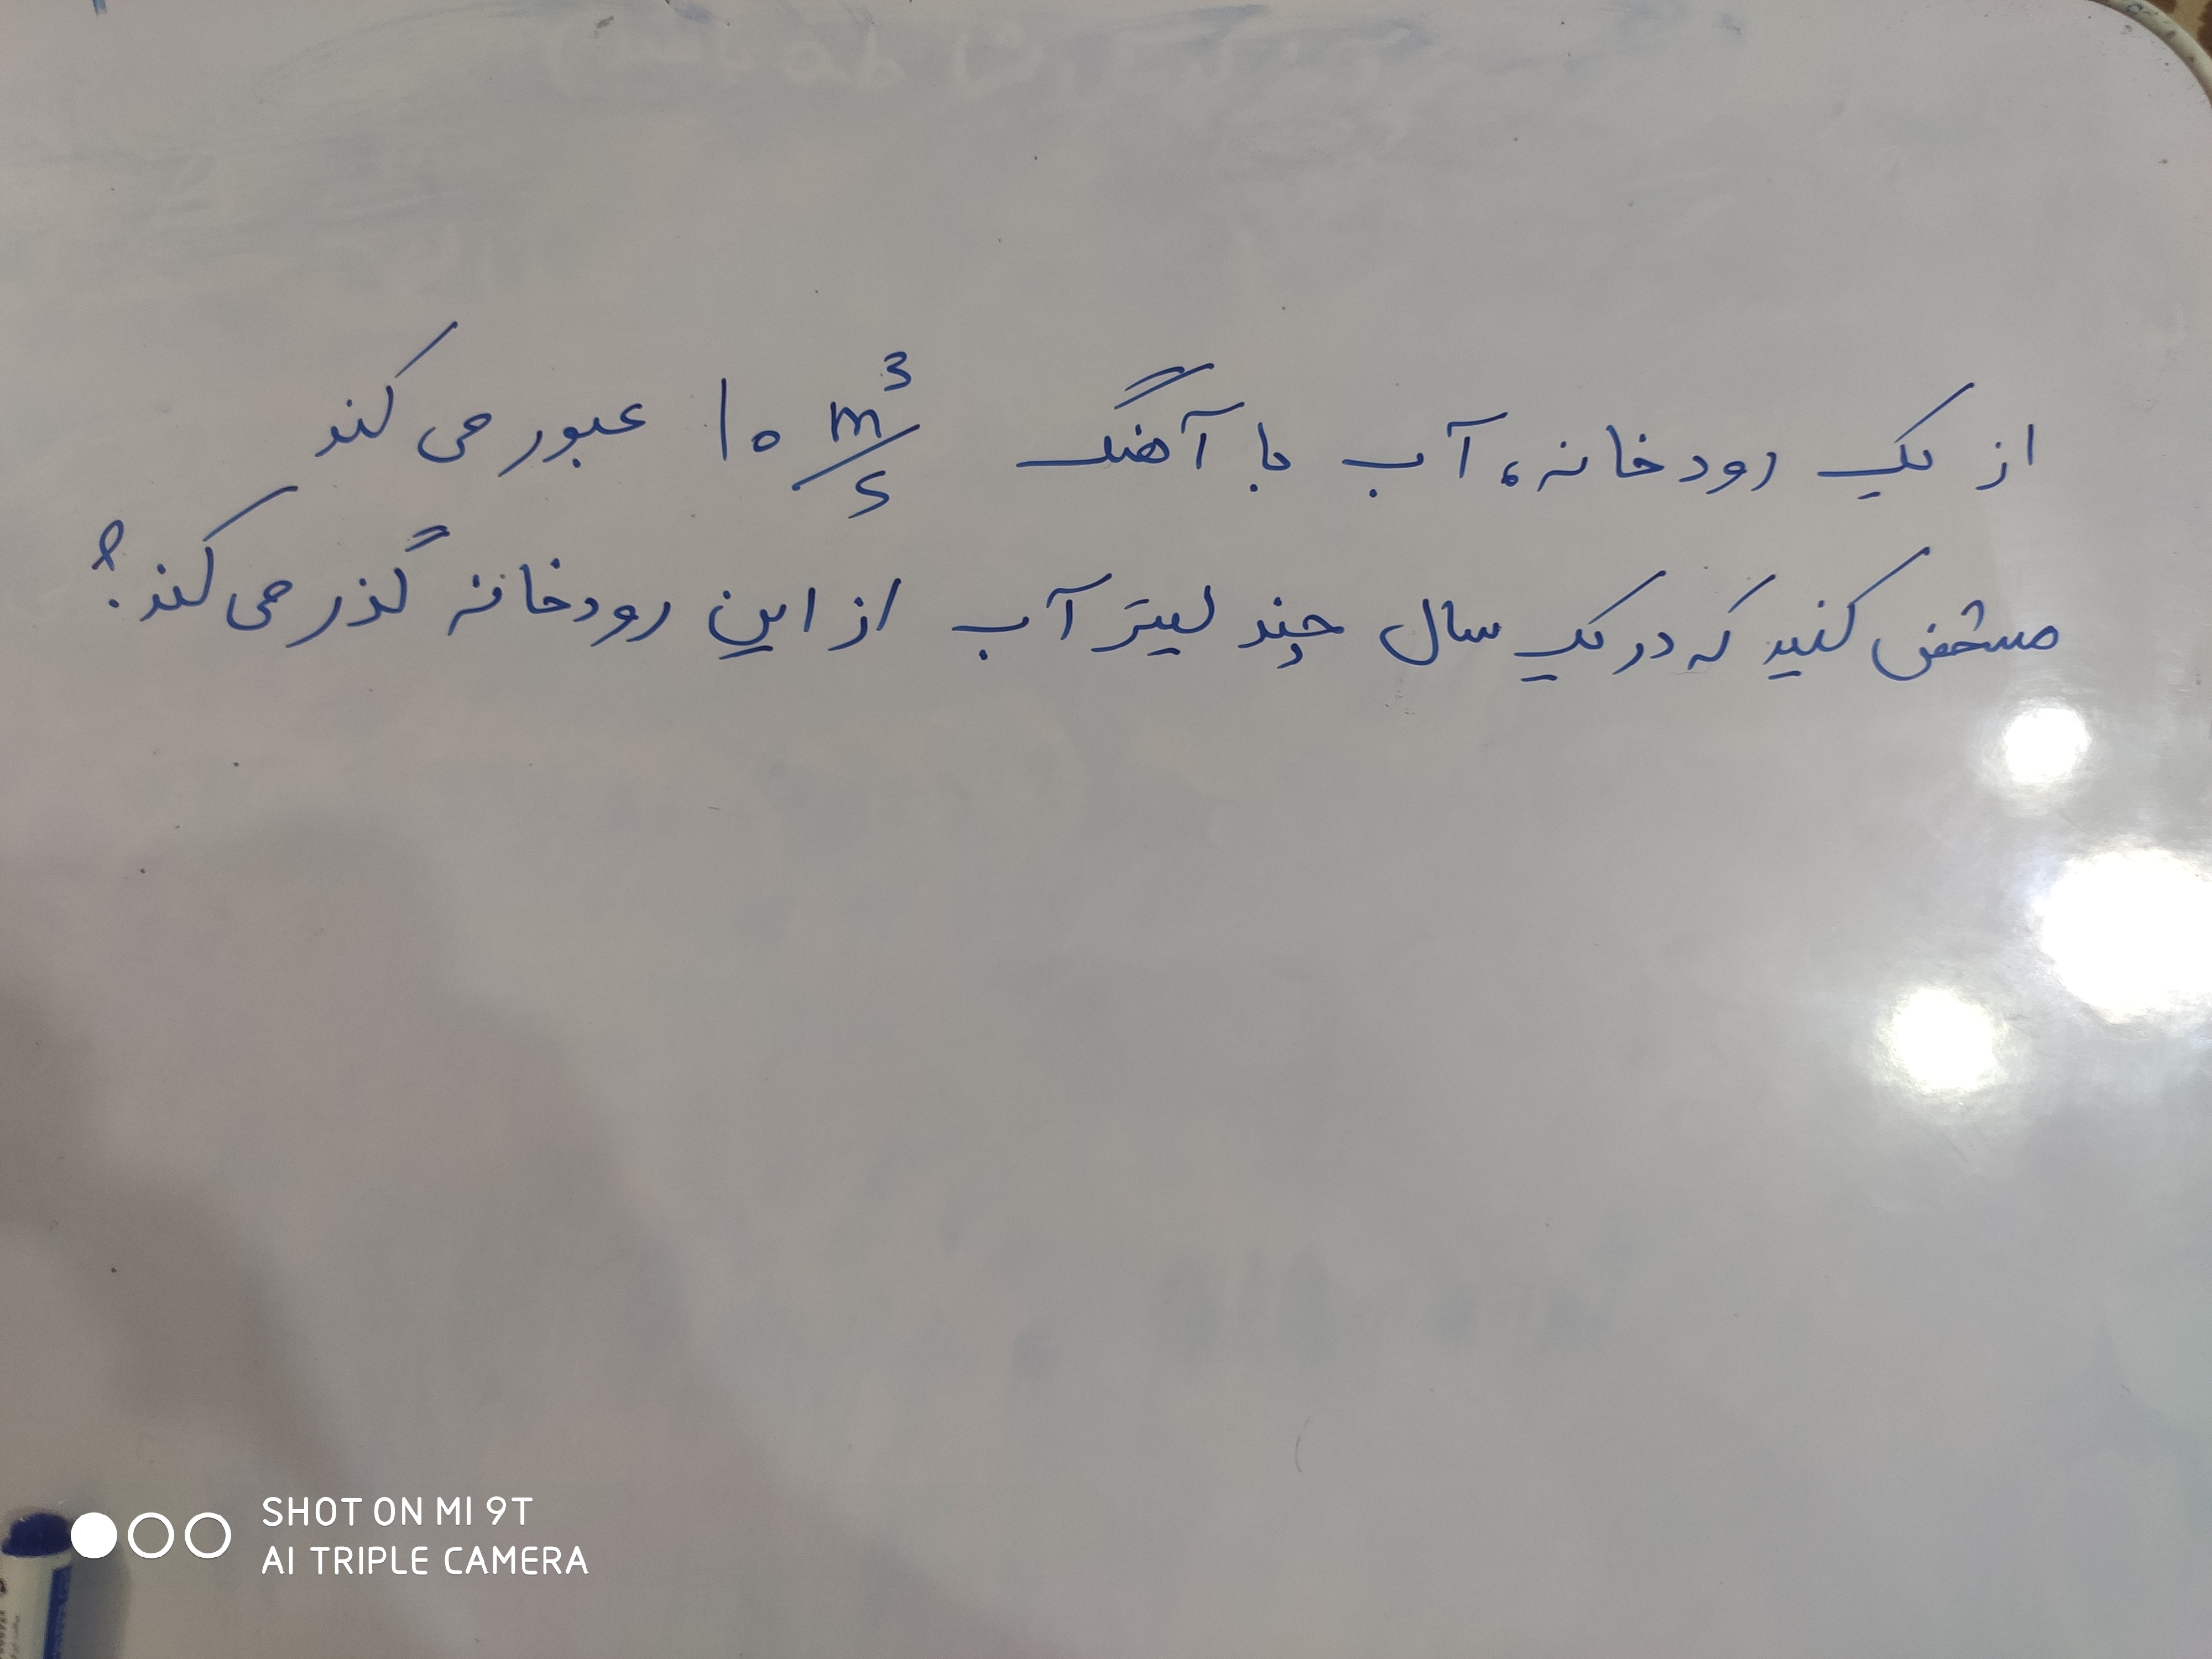 از یک رودخانه، آب با آهنگ 10 m³/s عبور می کند
مشخص کنید که در یک سال چند لیتر آب از این رودخانه گذر می کند؟
SHOT ON MI 9T
AI TRIPLE CAMERA